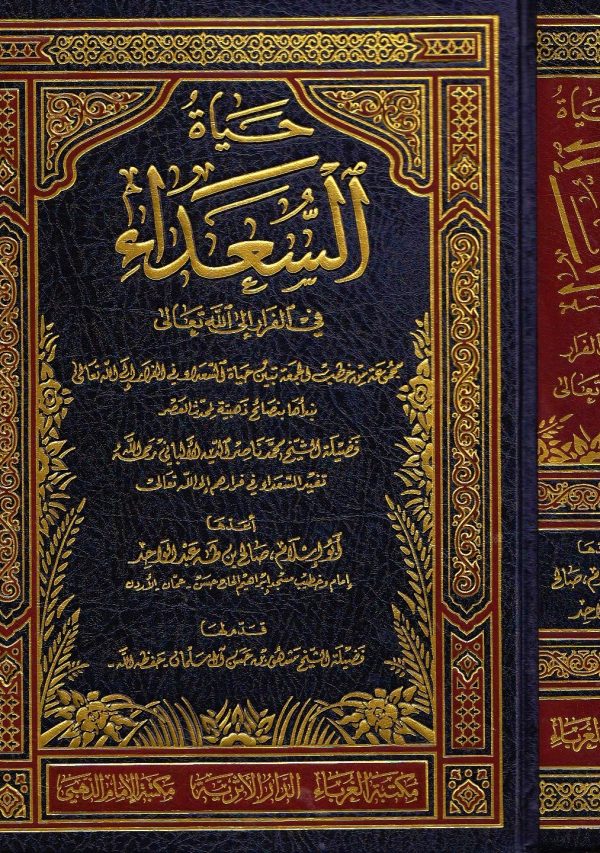 حَيَاةُ
السُّعَدَاءِ
فِي الفِرَارِ إِلَى اللَّهِ تَعَالَى
مجموعة من خطب الجمعة تبين حياة السعداء في الفرار إلى الله تعالى
نبدأها بنصائح ذهبية لمحدث العصر
فضيلة الشيخ محمد ناصر الدين الألباني رحمه الله
تفيد السعداء في فرارهم إلى الله تعالى
أعدها
أبو إسلام، صالح بن طه عبد الواحد
إمام وخطيب مسجد إبراهيم الحاج حسن - عمان الأردن
قدم لها
فضيلة الشيخ مشهور بن حسن آل سلمان - حفظه الله -
مكتبة الغرباء الدار الأثرية مكتبة الإمام الذهبي
حياة
السعداء
الفرار
تعالى
صالح
الغرباء